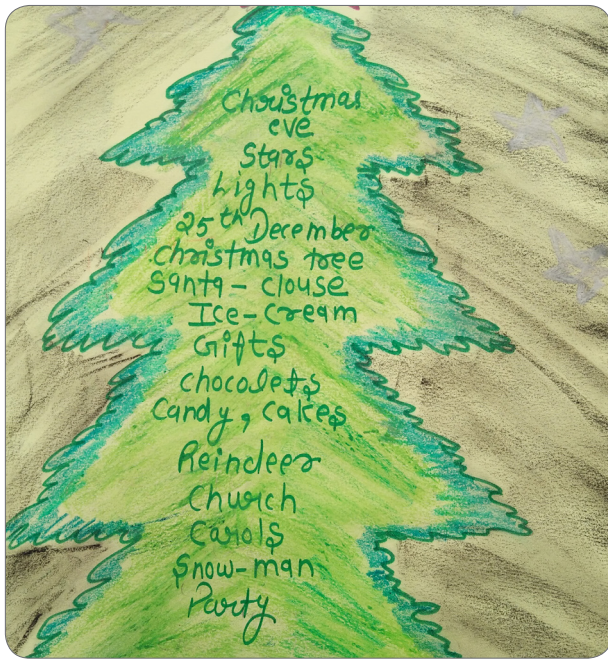 Christmas
eve
Stars
Lights
25th December
Christmas tree
Santa-clouse
Ice-Cream
Gifts
chocolets
Candy, Cakes
Reindeer
Church
Carols
Snow-man
Party